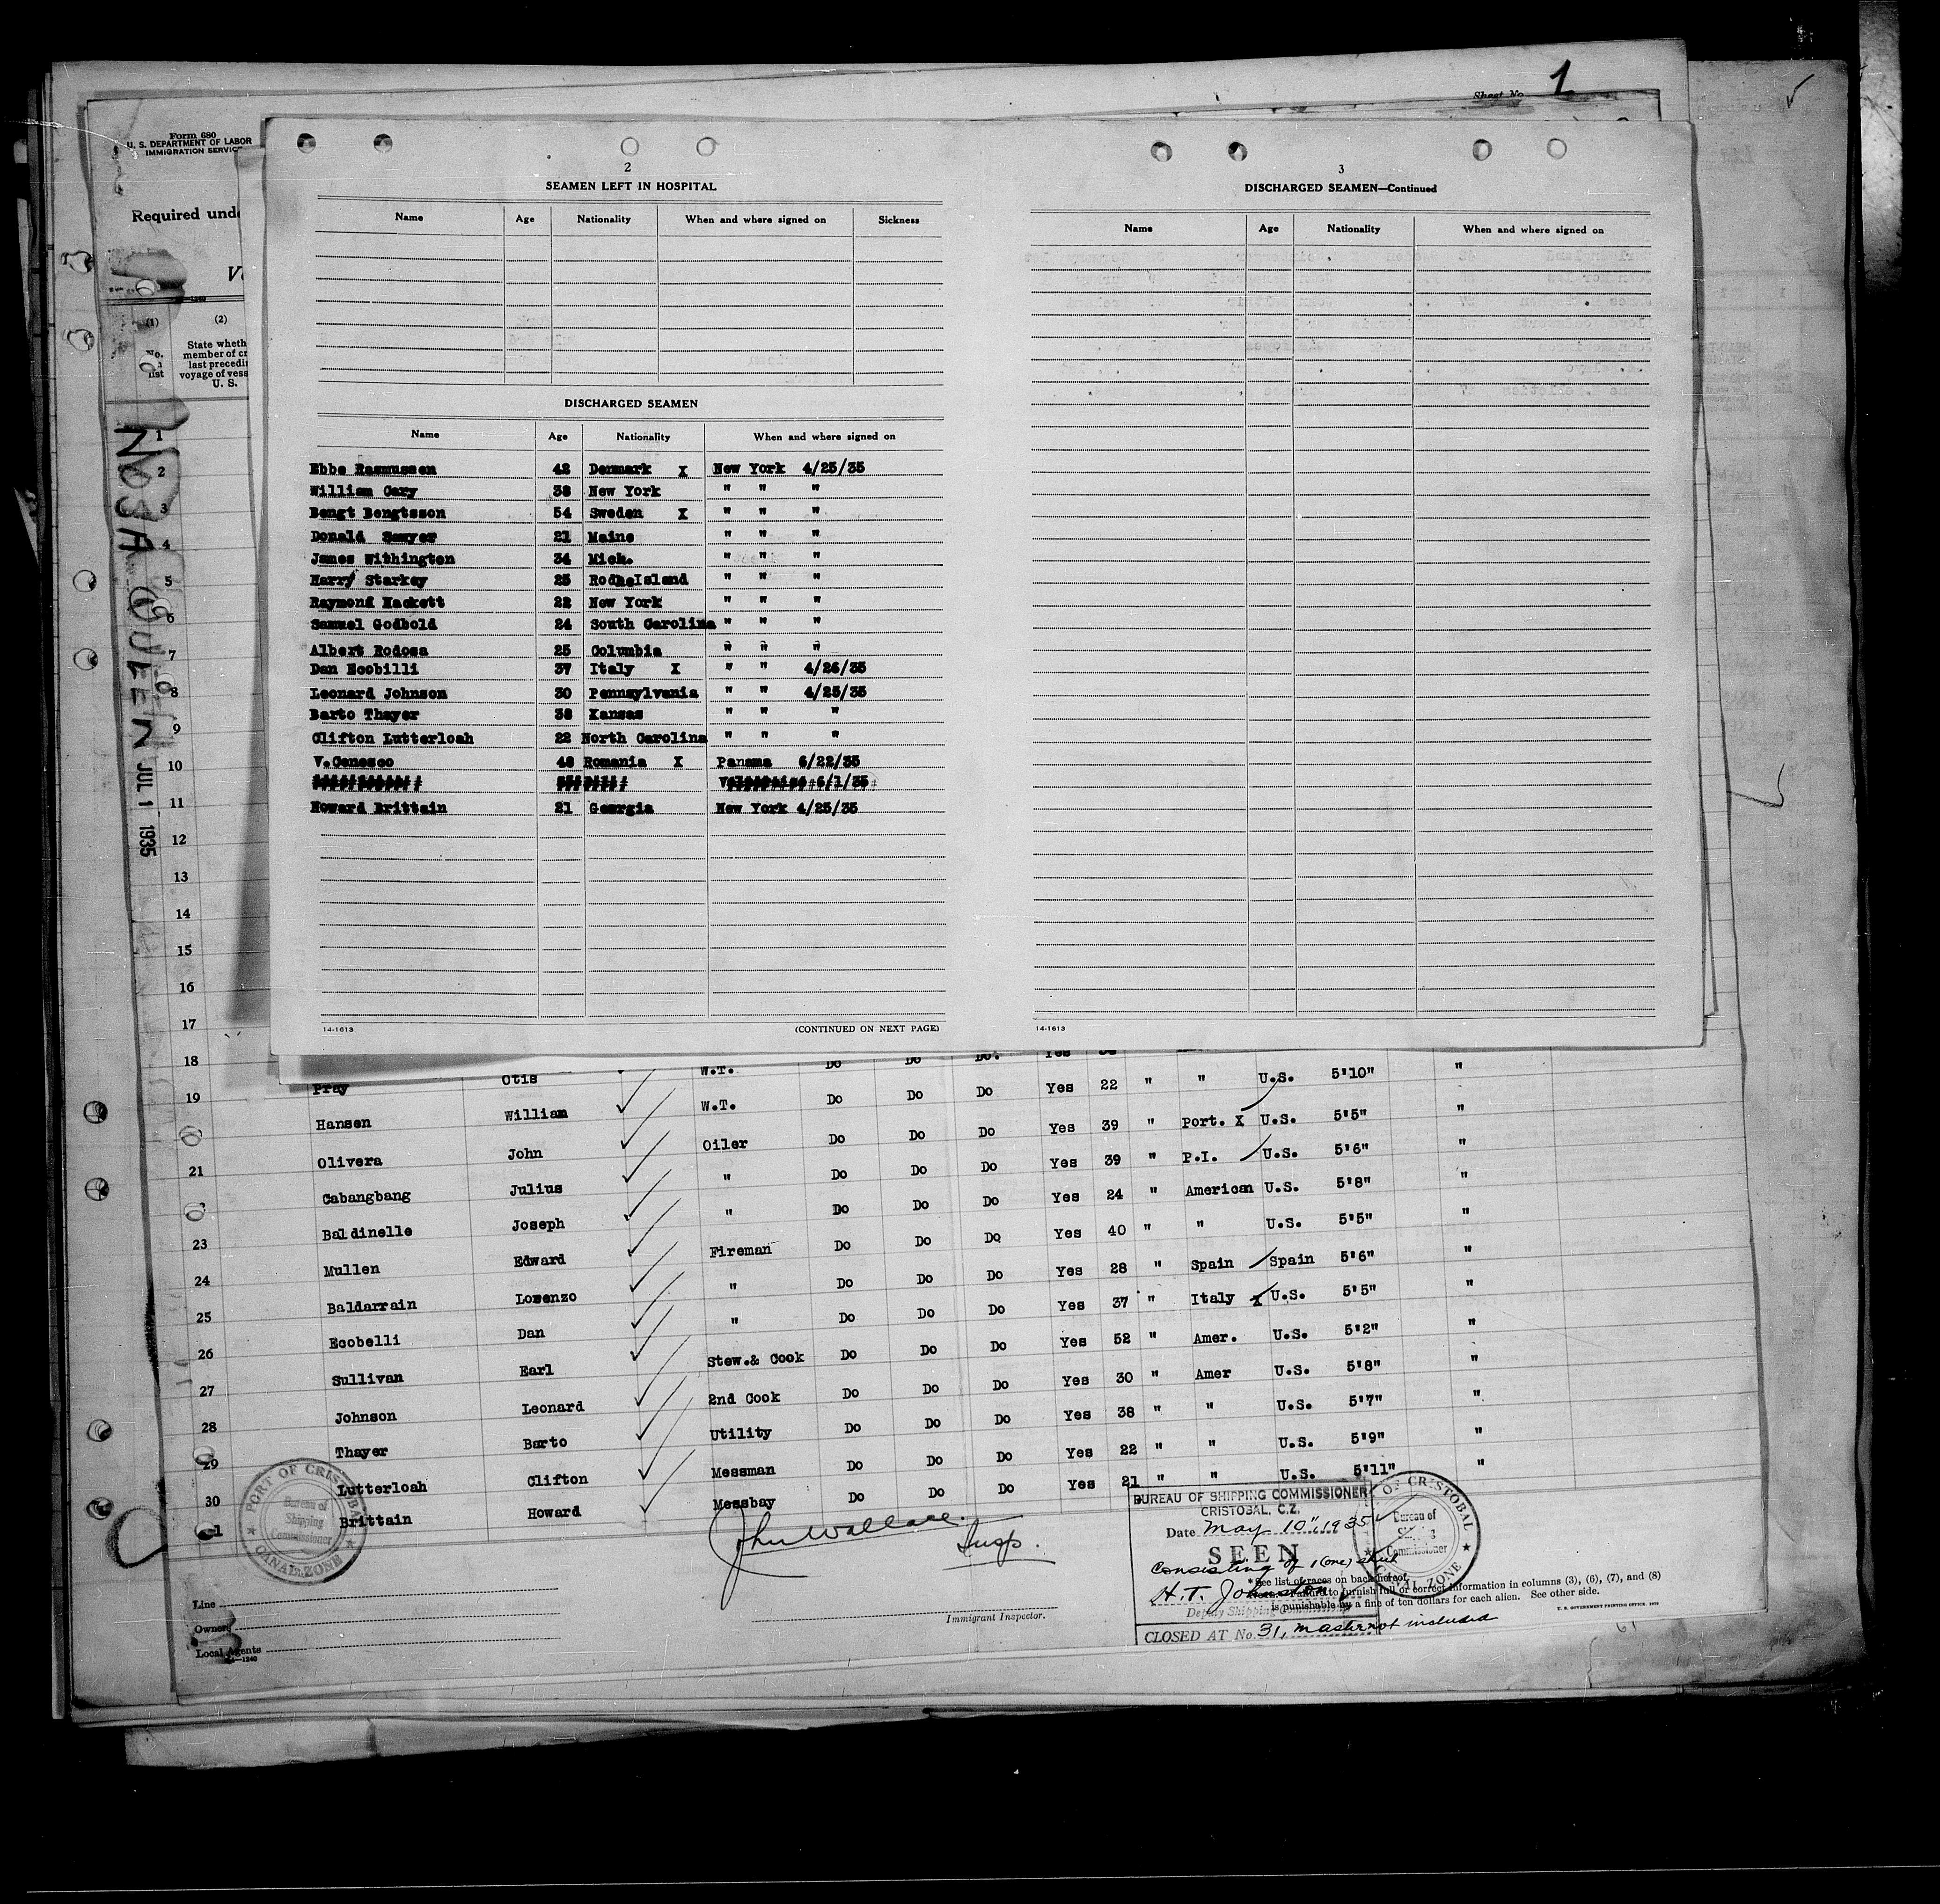 Sheet No. 1
Form 680
U. S. DEPARTMENT OF LABOR
IMMIGRATION SERVICE
Required unde
(1) (2)
No. list
State wheth
member of cr
last precedi
voyage of vess
U. S.
NOSA QUEEN JUL 1 1935
2
SEAMEN LEFT IN HOSPITAL
Name Age Nationality When and where signed on Sickness
DISCHARGED SEAMEN
Name Age Nationality When and where signed on
Ebbe Rasmussen 42 Denmark X New York 4/25/35
William Cary 38 New York " " "
Bengt Bengtsson 54 Sweden X " " "
Donald Sawyer 21 Maine " " "
James Withington 34 Mich. " " "
Harry Starkey 25 RodheIsland " " "
Raymond Hackett 22 New York " " "
Samuel Godbold 24 South Carolina " " "
Albert Rodosa 25 Columbia " " "
Dan Ecobilli 37 Italy X " " 4/26/35
Leonard Johnson 30 Pennsylvania " " 4/25/35
Barto Thayer 38 Kansas " " "
Clifton Lutterloah 22 North Carolina " " "
V.Cenesco 48 Romania X Panama 6/22/35
6/1/35
Howard Brittain 21 Georgia New York 4/25/35
14-1613 (CONTINUED ON NEXT PAGE)
3
DISCHARGED SEAMEN—Continued
Name Age Nationality When and where signed on
14-1613
1
2
3
4
5
6
7
8
9
10
11
12
13
14
15
16
17
18
19 Pray Otis W.T. Do Do Do. Yes
Hansen William W.T. Do Do Do Yes 22 " " U.S. 5'10" "
21 Olivera John Oiler Do Do Do Yes 39 " Port. X U.S. 5'5" "
Cabangbang Julius " Do Do Do Yes 39 " P.I. U.S. 5'6" "
23 Baldinelle Joseph " Do Do Do Yes 24 " American U.S. 5'8" "
24 Mullen Edward Fireman Do Do Do Yes 40 " " U.S. 5'5" "
25 Baldarrain Lorenzo " Do Do Do Yes 28 " Spain Spain 5'6" "
26 Ecobelli Dan " Do Do Do Yes 37 " Italy X U.S. 5'5" "
27 Sullivan Earl Stew.& Cook Do Do Do Yes 52 " Amer. U.S. 5'2" "
28 Johnson Leonard 2nd Cook Do Do Do Yes 30 " Amer U.S. 5'8" "
29 Thayer Barto Utility Do Do Do Yes 38 " " U.S. 5'7" "
30 Lutterloah Clifton Messman Do Do Do Yes 22 " " U.S. 5'9" "
Brittain Howard Messbay Do Do Do Yes 21 " " U.S. 5'11" "
PORT OF CRISTOBAL
Bureau of
Shipping
Commissioner
CANAL ZONE
John Wallace
Insp.
Immigrant Inspector.
Line
Owners
Local Agents
BUREAU OF SHIPPING COMMISSIONER
CRISTOBAL, C.Z.
Date May 10", 1935
SEEN
Consisting of 1 (one) sheet
H.T. Johnston
Deputy Shipping Commissioner
CLOSED AT No. 31, Master not included
OF CRISTOBAL
Bureau of
Commissioner
CANAL ZONE
*See list of races on back hereof.
Failure to furnish full or correct information in columns (3), (6), (7), and (8)
is punishable by a fine of ten dollars for each alien. See other side.
U. S. GOVERNMENT PRINTING OFFICE